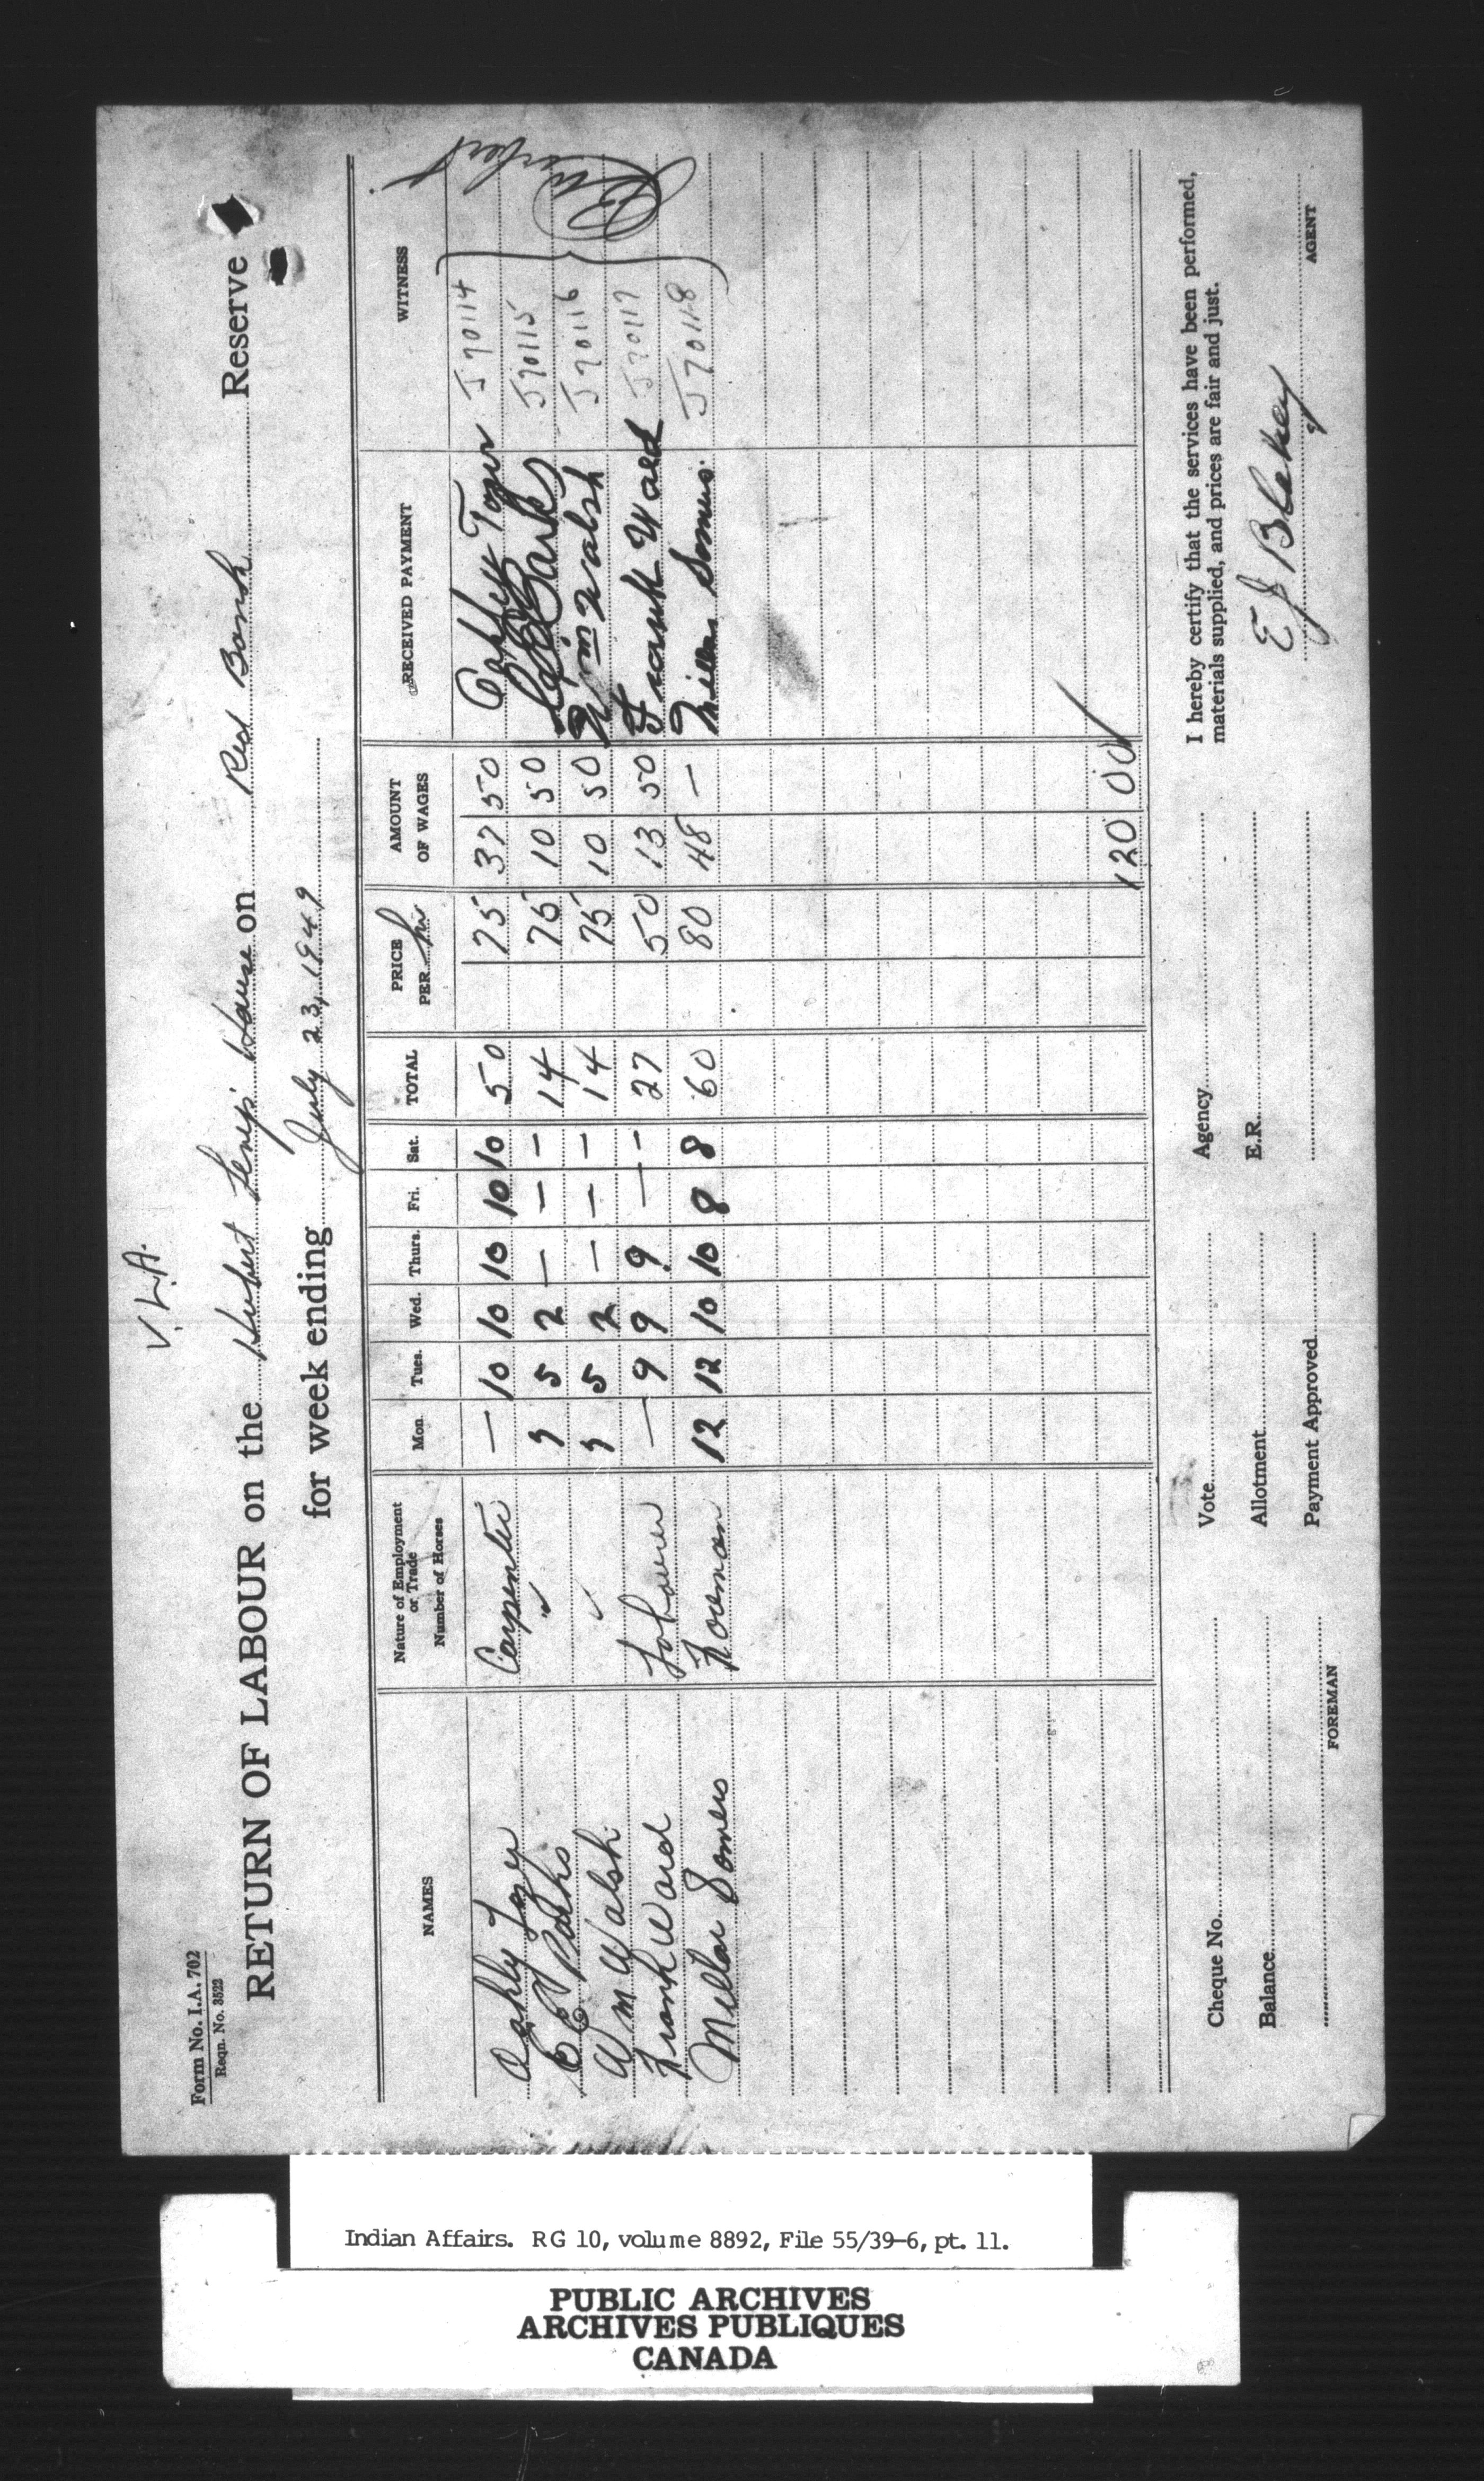 V.L.A.
Form No. I.A. 702
Reqn. No. 3522
RETURN OF LABOUR on the Hubert House on Red Bank Reserve
for week ending July 23, 1949
NAMES Nature of Employment or Trade Number of Horses Mon. Tues. Wed. Thurs. Fri. Sat. TOTAL PRICE PER hr AMOUNT OF WAGES RECEIVED PAYMENT WITNESS
Carpenter — 10 10 10 10 10 50 75 37 50 J70114
E E Parks " 7 5 2 — — — 14 75 10 50 J70115
Wm Walsh ✓ 7 5 2 — — — 14 75 10 50 Wm Walsh J70116
Frank Ward Labourer — 9 9 9 — — 27 50 13 50 Frank Ward J70117
Millar Somers Foreman 12 12 10 10 8 8 60 80 48 — Millar Somers J70118
120 00
Cheque No. Vote Agency I hereby certify that the services have been performed,
materials supplied, and prices are fair and just.
Balance Allotment E.R.
E J Blakey
Payment Approved
FOREMAN AGENT
Indian Affairs. RG 10, volume 8892, File 55/39-6, pt. 11.
PUBLIC ARCHIVES
ARCHIVES PUBLIQUES
CANADA